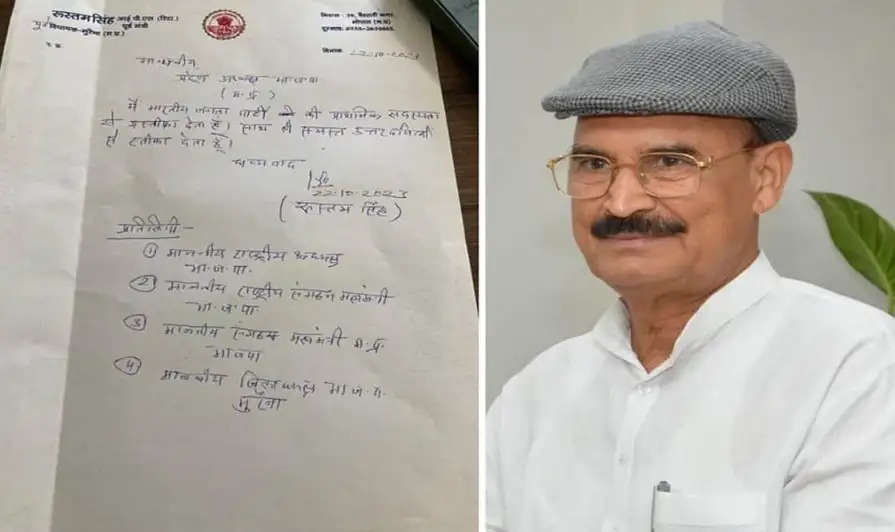 रूस्तम सिंह आई.पी.एस (रिटा.)
पूर्व मंत्री
पूर्व विधायक-मुरैना (म.प्र.)
भोपाल (म.प्र.)
दिनांक 22-10-2023
माननीय
प्रदेश अध्यक्ष भाजपा
(म.प्र)
मैं भारतीय जनता पार्टी की प्राथमिक सदस्यता
से इस्तीफा देता हूँ। साथ ही समस्त उत्तरदायित्वों
से इस्तीफा देता हूँ।
धन्यवाद
22-10-2023
(रूस्तम सिंह)
प्रतिलिपी -
① माननीय राष्ट्रीय अध्यक्ष
भा.ज.पा.
② माननीय राष्ट्रीय संगठन महामंत्री
भा.ज.पा
③ माननीय संगठन महामंत्री म.प्र.
भाजपा
④ माननीय जिलाध्यक्ष भा.ज.पा.
मुरैना